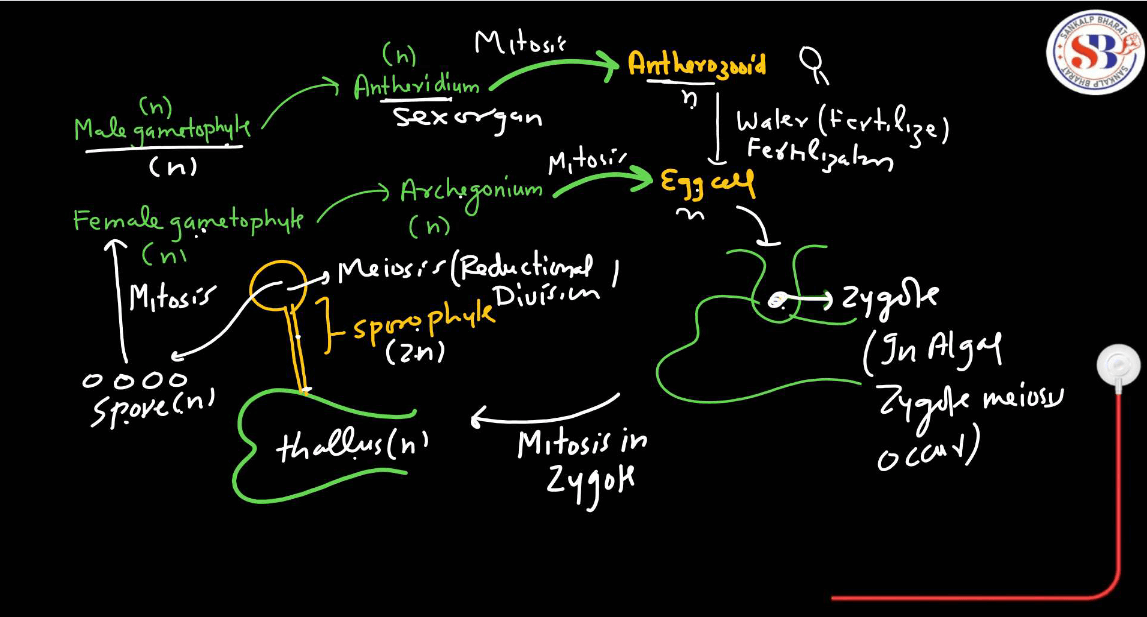 (n)
Antheridium
sex organ
Mitosis
Antherozooid
n
(n)
Male gametophyte
(n)
Water (Fertilize)
Fertilization
Mitosis
Egg cell
n
Archegonium
(n)
Female gametophyte
(n)
Mitosis
Meiosis (Reductional
Division)
Sporophyte
(2n)
Spore (n)
thallus (n)
Mitosis in
Zygote
Zygote
(In Algae
Zygote meiosis
occur)
SANKALP BHARAT
SB
SANKALP BHARAT